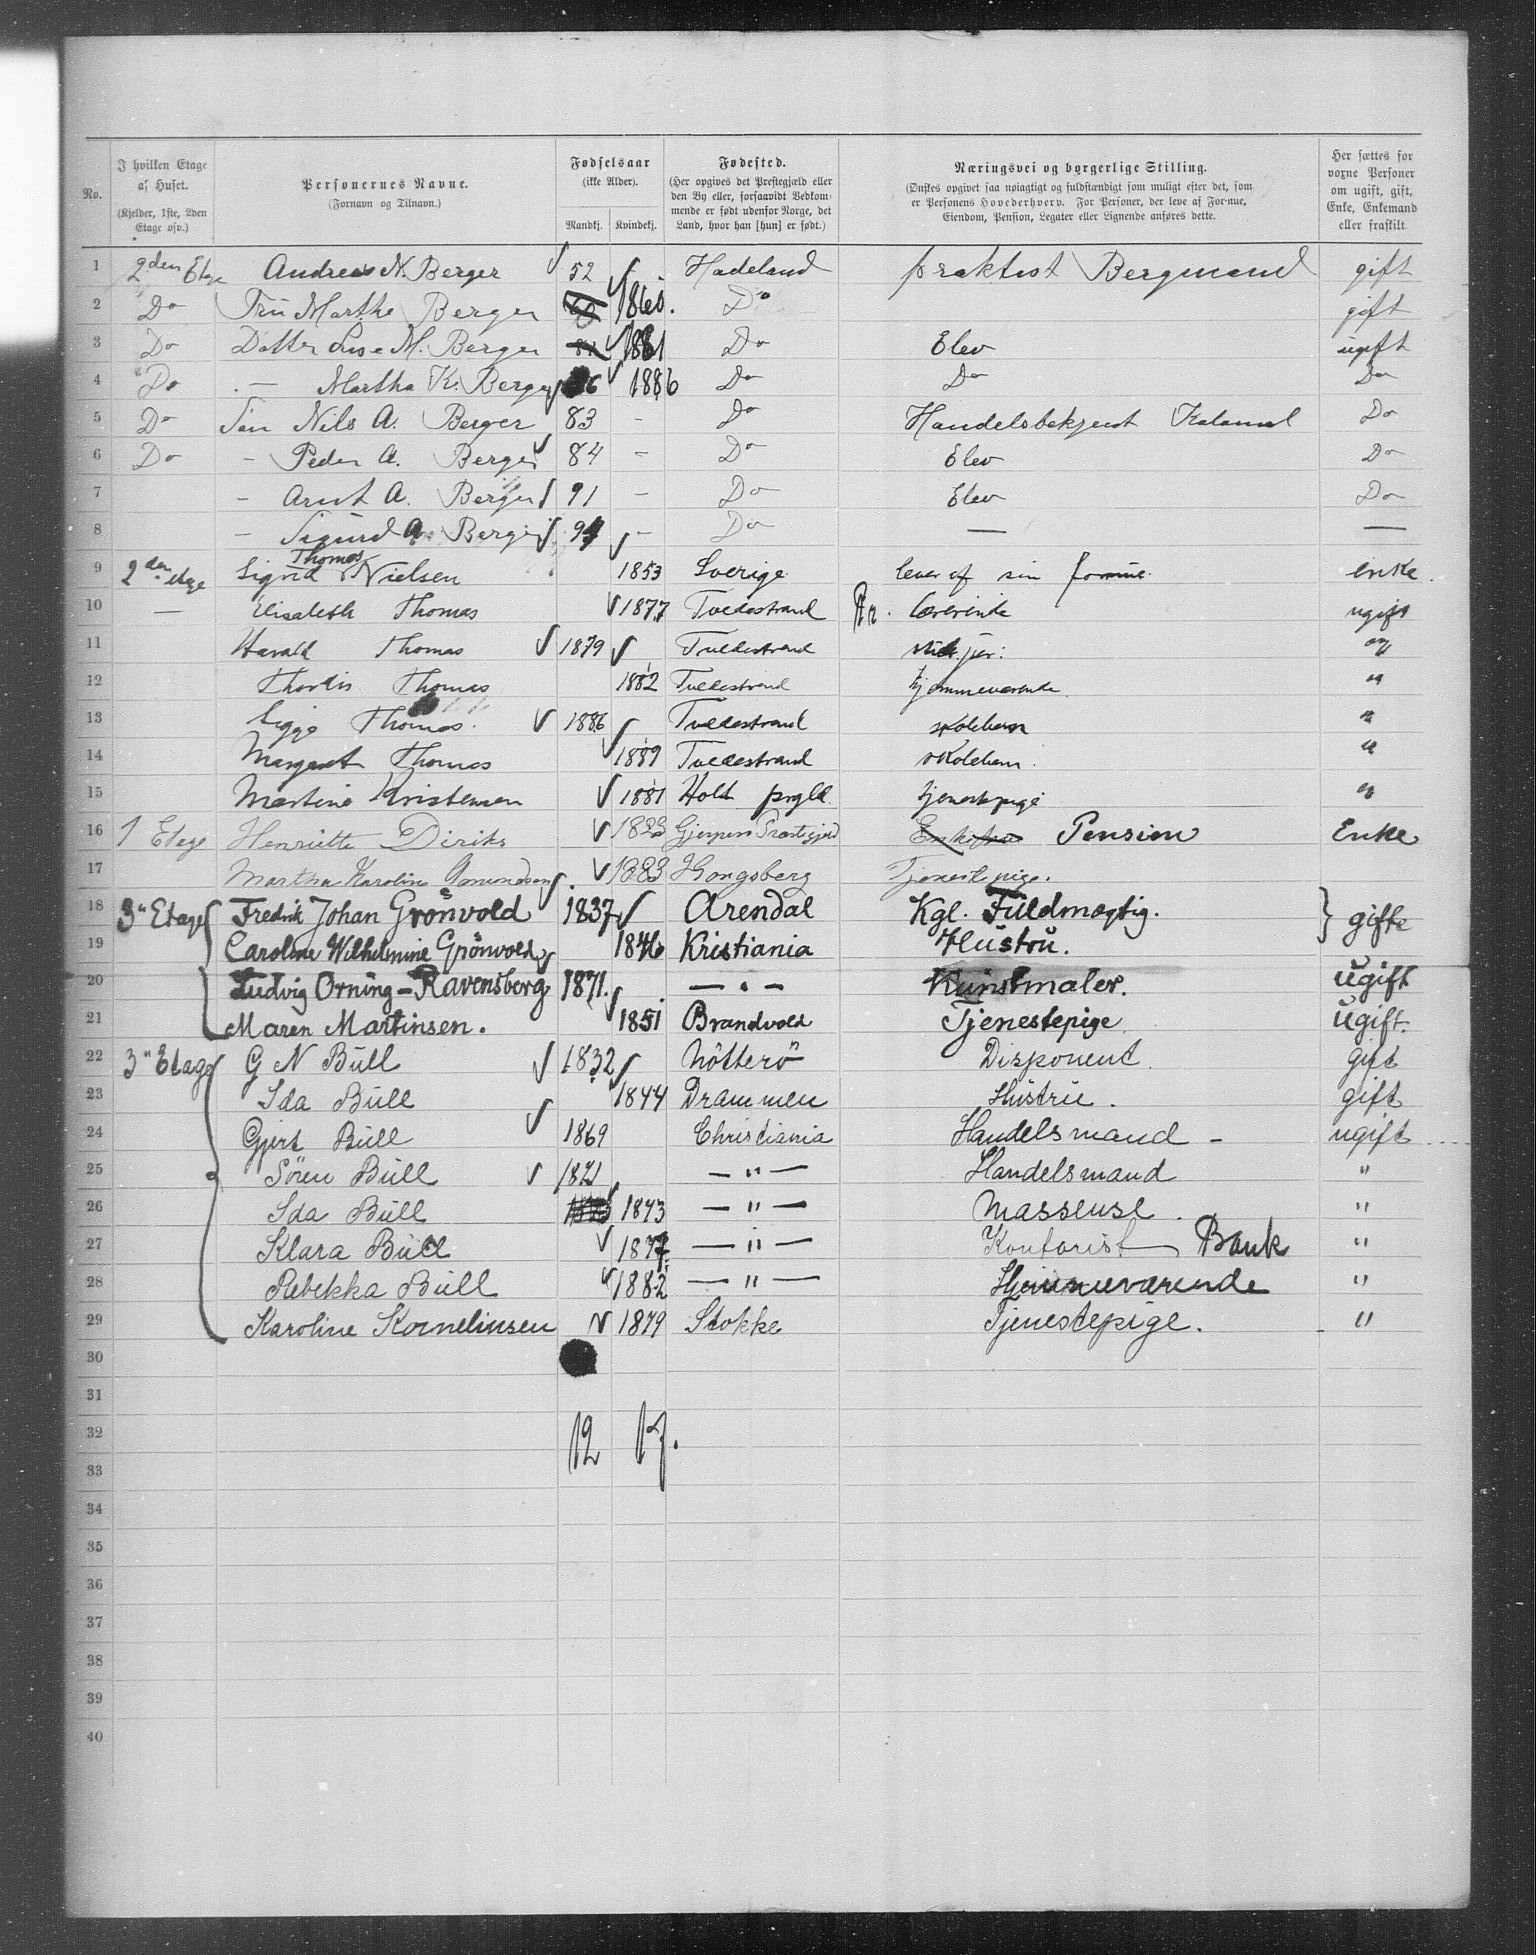 No.
I hvilken Etage af Huset. (Kjelder, 1ste, 2den Etage osv.)
Personernes Navne. (Fornavn og Tilnavn.)
Fødselsaar (ikke Alder). Mandkj. Kvindekj.
Fødested. (Her opgives det Prestegjæld eller den By eller, forsaavidt Vedkommende er født udenfor Norge, det Land, hvor han [hun] er født.)
Næringsvei og borgerlige Stilling. (Ønskes opgivet saa nøiagtigt og fuldstændigt som muligt efter det, som er Personens Hovederhverv. For Personer, der leve af Formue, Eiendom, Pension, Legater eller Lignende anføres dette.
Her sættes for voxne Personer om ugift, gift, Enke, Enkemand eller fraskilt
1 2den Etage Andreas N. Berger 52 Hadeland praktist Bergmand gift
2 Do Fru Marthe Berger 1860. Do gift
3 Do Datter Lise M. Berger 1881 Do Elev ugift
4 Do — Martha K. Berger 1886 Do Do Do
5 Do Søn Nils A. Berger 83 - Do Handelsbetjent Do
6 Do - Peder A. Berger 84 - Do Elev Do
7 - Arnt A. Berger 91 - Do Elev Do
8 - Sigurd A. Berger 94 - Do — —
9 2den etage Sigrid Thomas Nielsen 1853 Sverige lever af sin formue enke.
10 — Elisabeth Thomas 1877 Tvedestrand lærerinde ugift
11 Harald Thomas 1879 Tvedestrand "
12 Thordis Thomas 1882 Tvedestrand hjemmeværende "
13 Sigge Thomas 1886 Tvedestrand skolebarn "
14 Margaret Thomas 1889 Tvedestrand skolebarn "
15 Martine Kristensen 1881 Holt prgld tjenestepige "
16 1 Etage Henriette Diriks 1833 Gjerpens Præstegjeld Enkefrue Pension Enke
17 Martha Karoline Amundsen 1883 Kongsberg Tjenestepige.
18 3" Etage Fredrik Johan Grönvold 1837 Arendal Kgl. Fuldmægtig. gifte
19 Caroline Wilhelmine Grönvold 1846 Kristiania Hustru.
20 Ludvig Orning-Ravensberg 1871. — " — Kunstmaler. ugift
21 Maren Martinsen. 1851 Brandvold Tjenestepige ugift.
22 3" Etage G N Bull 1832 Nötterö Disponent gift
23 Ida Bull 1844 Drammen Hustru. gift
24 Gjert Bull 1869 Christiania Handelsmand - ugift
25 Sören Bull 1871 — " — Handelsmand "
26 Ida Bull 1873 — " — Masseuse. "
27 Klara Bull 1877 — " — Kontorist Bank "
28 Rebekka Bull 1882 — " — Hjemmeværende "
29 Karoline Kornelinsen 1879 Stokke Tjenestepige. "
30
31
32 12 17.
33
34
35
36
37
38
39
40